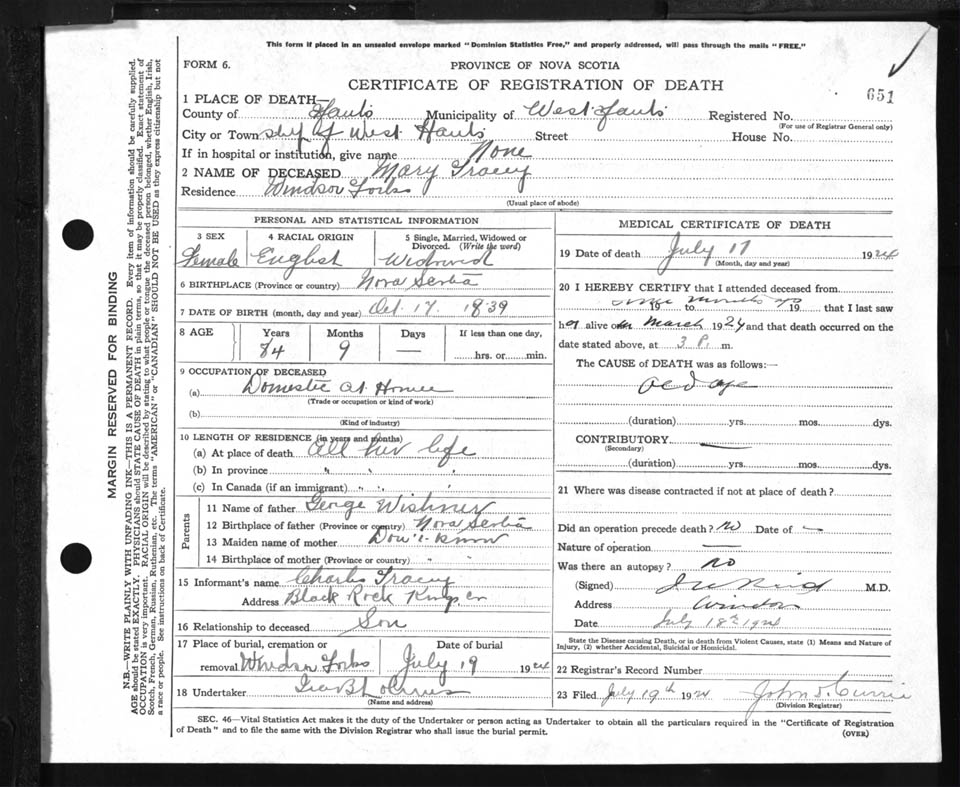 This form if placed in an unsealed envelope marked "Dominion Statistics Free," and properly addressed, will pass through the mails "FREE."
FORM 6.
PROVINCE OF NOVA SCOTIA
CERTIFICATE OF REGISTRATION OF DEATH
651
1 PLACE OF DEATH—
County of Hants Municipality of West Hants Registered No.
(For use of Registrar General only)
City or Town of West Hants Street House No.
If in hospital or institution, give name None
2 NAME OF DECEASED Mary Tracey
Residence Windsor Forks
(Usual place of abode)
PERSONAL AND STATISTICAL INFORMATION
3 SEX 4 RACIAL ORIGIN 5 Single, Married, Widowed or Divorced. (Write the word)
Female English Widowed
6 BIRTHPLACE (Province or country) Nova Scotia
7 DATE OF BIRTH (month, day and year) Oct. 17. 1839
8 AGE Years Months Days If less than one day,
84 9 — hrs. or min.
9 OCCUPATION OF DECEASED
(a) Domestic at Home
(Trade or occupation or kind of work)
(b)
(Kind of industry)
10 LENGTH OF RESIDENCE (in years and months)
(a) At place of death All her life
(b) In province " " "
(c) In Canada (if an immigrant) " " "
Parents
11 Name of father George
12 Birthplace of father (Province or country) Nova Scotia
13 Maiden name of mother Don't Know
14 Birthplace of mother (Province or country) " "
15 Informant's name Charles Tracey
Address Black Rock Kings Co
16 Relationship to deceased Son
17 Place of burial, cremation or Date of burial
removal Windsor Forks July 19 1924
18 Undertaker
(Name and address)
MEDICAL CERTIFICATE OF DEATH
19 Date of death July 17 1924
(Month, day and year)
20 I HEREBY CERTIFY that I attended deceased from
to 19 that I last saw
her alive on March 1924 and that death occurred on the
date stated above, at 3 P. m.
The CAUSE OF DEATH was as follows:—
Old age
(duration) yrs. mos. dys.
CONTRIBUTORY —
(Secondary)
(duration) yrs. mos. dys.
21 Where was disease contracted if not at place of death?
Did an operation precede death? No Date of —
Nature of operation —
Was there an autopsy? No
(Signed) M.D.
Address Windsor
Date July 18th 1924
State the Disease causing Death, or in death from Violent Causes, state (1) Means and Nature of
Injury, (2) whether Accidental, Suicidal or Homicidal.
22 Registrar's Record Number
23 Filed July 19th 1924 John S. Currie
(Division Registrar)
SEC. 46—Vital Statistics Act makes it the duty of the Undertaker or person acting as Undertaker to obtain all the particulars required in the "Certificate of Registration
of Death" and to file the same with the Division Registrar who shall issue the burial permit.
(OVER)
MARGIN RESERVED FOR BINDING
N.B.—WRITE PLAINLY WITH UNFADING INK—THIS IS A PERMANENT RECORD. Every item of information should be carefully supplied.
AGE should be stated EXACTLY. PHYSICIANS should STATE CAUSE OF DEATH in plain terms, so that it may be properly classified. Exact statement of
OCCUPATION is very important. RACIAL ORIGIN will be described by stating to what people or tongue the deceased person belonged, whether English, Irish,
Scotch, French, German, Russian, Ruthenian, etc. The terms "AMERICAN" or "CANADIAN" SHOULD NOT BE USED as they express citizenship but not
a race or people. See instructions on back of Certificate.